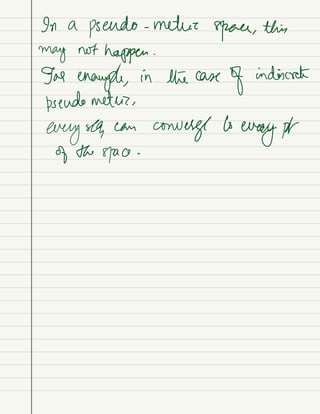 In a pseudo-metric space, this
may not happen.
For example, in the case of indiscrete
pseudo metric,
every seq can converge to every pt
of the space.